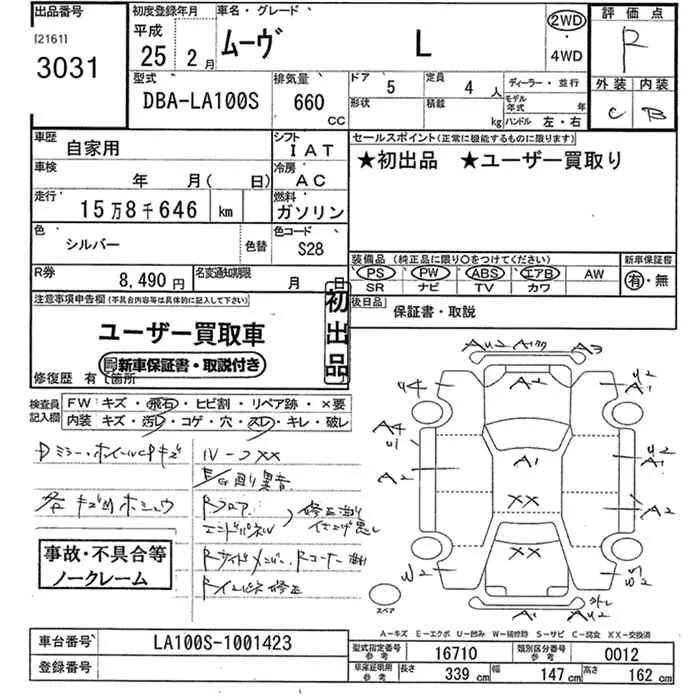 出品番号
[2161]
3031
初度登録年月
平成
25 年 2 月
車名・グレード
ムーヴ L
2WD
・
4WD
評価点
R
外装 内装
C B
型式
DBA-LA100S
排気量
660 CC
ドア 5
定員 4 人
形状
積載 kg
ディーラー・並行
モデル年式 年
ハンドル 左・右
車歴 自家用
シフト IAT
車検 年 月( 日)
冷房 AC
走行 15万8千646 km
燃料 ガソリン
色 シルバー 色替
色コード S28
R券 8,490 円
名変通知期限 月 日
セールスポイント(正常に機能するものに限ります)
★初出品 ★ユーザー買取り
装備品 (純正品に限り○をつけてください)
PS PW ABS エアB AW
SR ナビ TV カワ
新車保証書
有・無
後日品
保証書・取説
注意事項申告欄(不具合内容等は具体的に記入して下さい)
ユーザー買取車
新車保証書・取説付き
初出品
修復歴 有 [箇所
検査員
記入欄
FW:キズ・飛石・ヒビ割・リペア跡・×要
内装 キズ・汚レ・コゲ・穴・スレ・キレ・破レ
各キズ凹ホシュウ
Rフロア
エンドパネル
修正跡
仕上げ悪し
事故・不具合等
ノークレーム
A2
A3
A2
U4
A1
A4
U1
A2
A1
A1
A2
XX
XX
W2
A1
スペア
A-キズ E-エクボ U-凹み W-補修跡 S-サビ C-腐食 XX-交換済
車台番号 LA100S-1001423
登録番号
型式指定番号
参考
16710
類別区分番号
参考
0012
車検証明用
参考
長さ 339 cm
幅 147 cm
高さ 162 cm